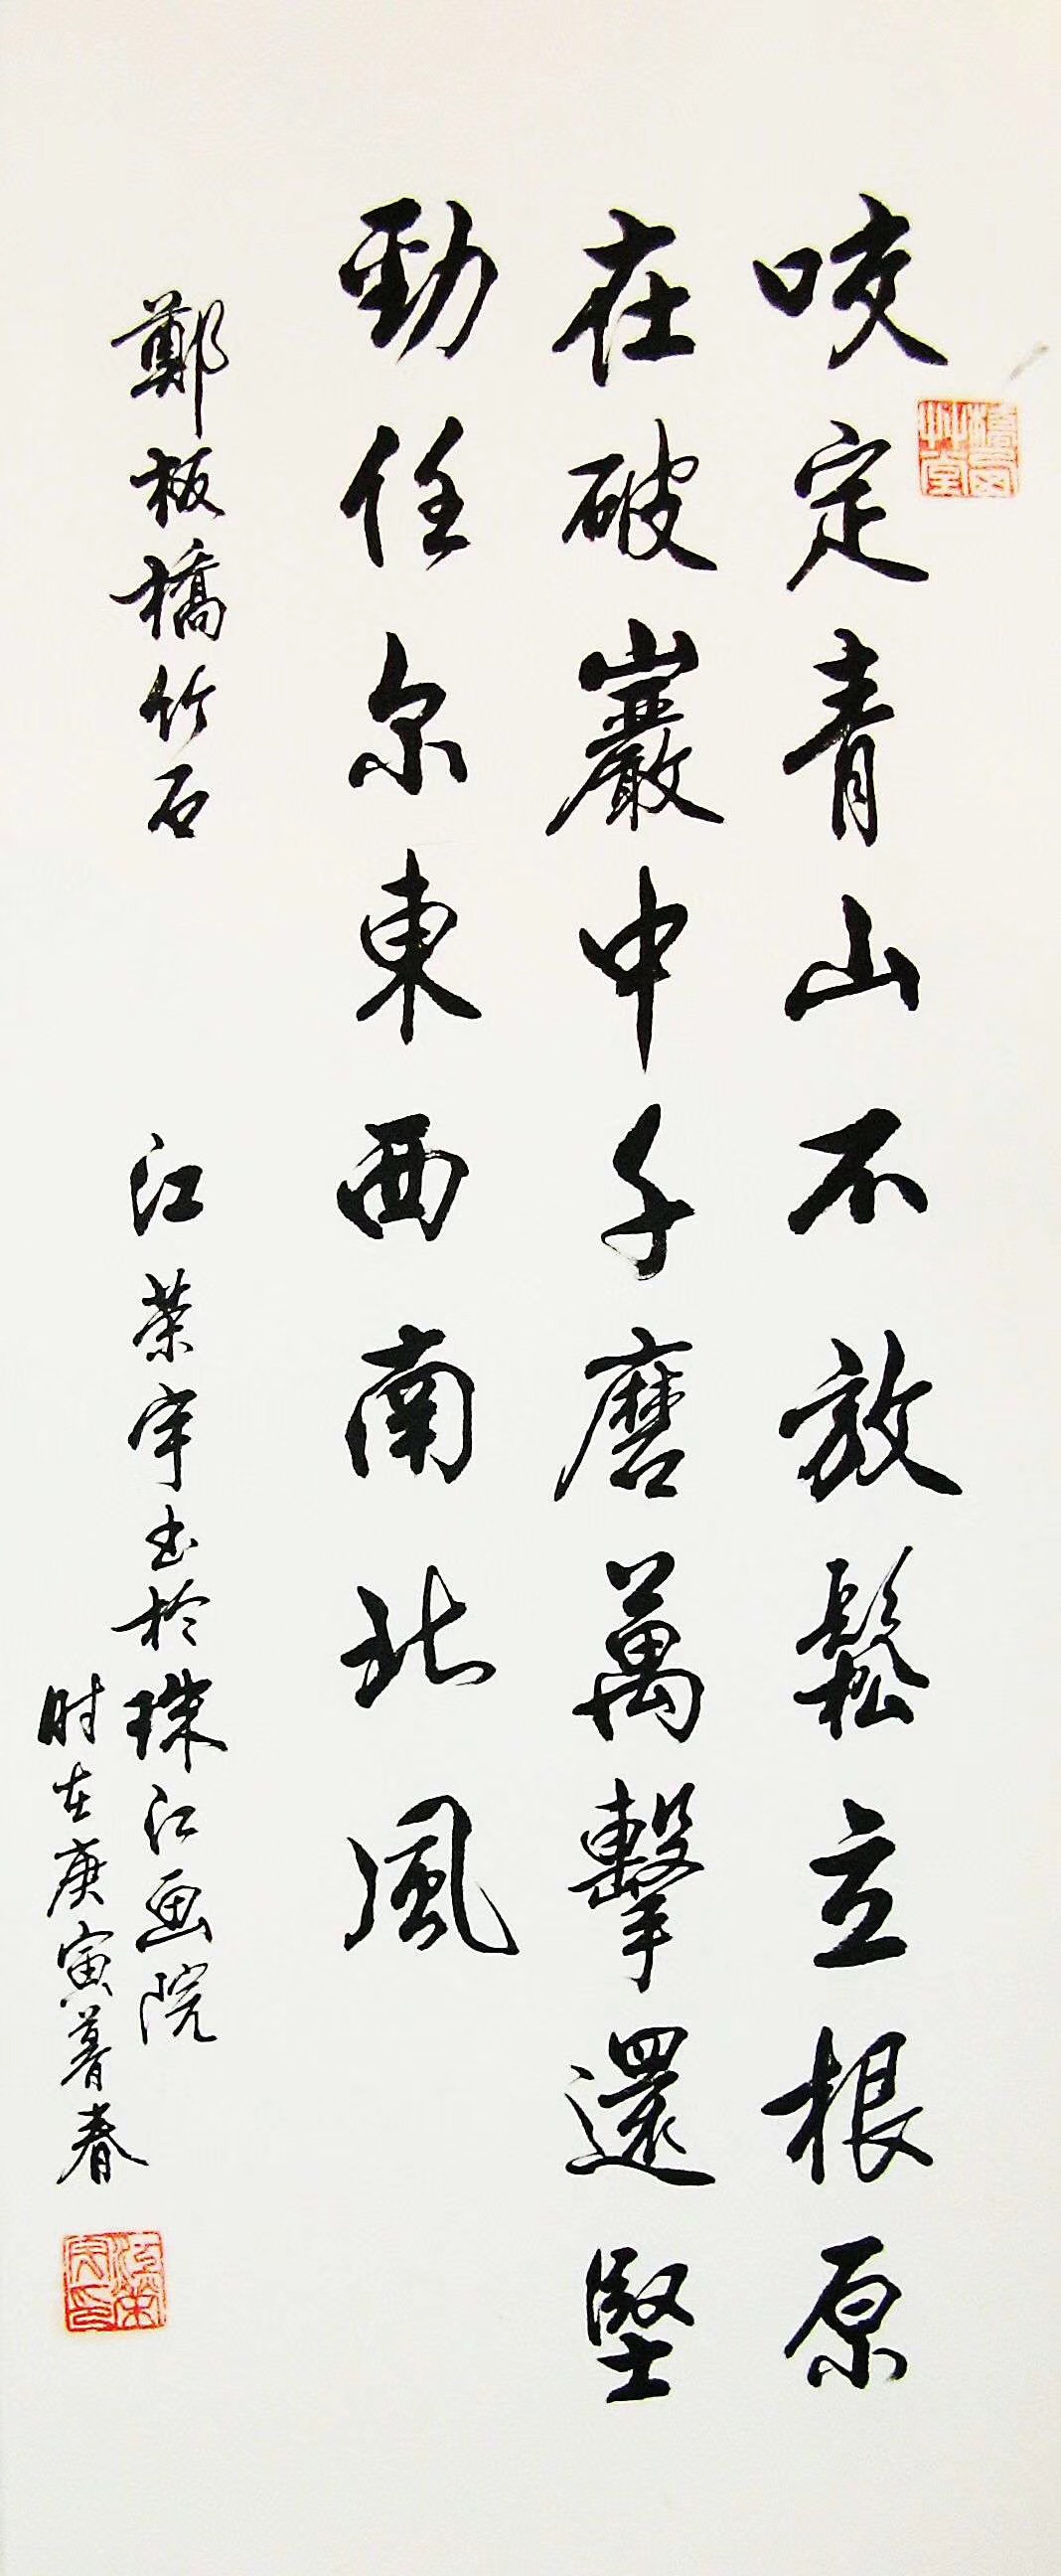 咬定青山不放鬆立根原
在破巖中千磨萬擊還堅
勁任尔東西南北風
鄭板橋竹石
江荣宇书於珠江画院
时在庚寅暮春